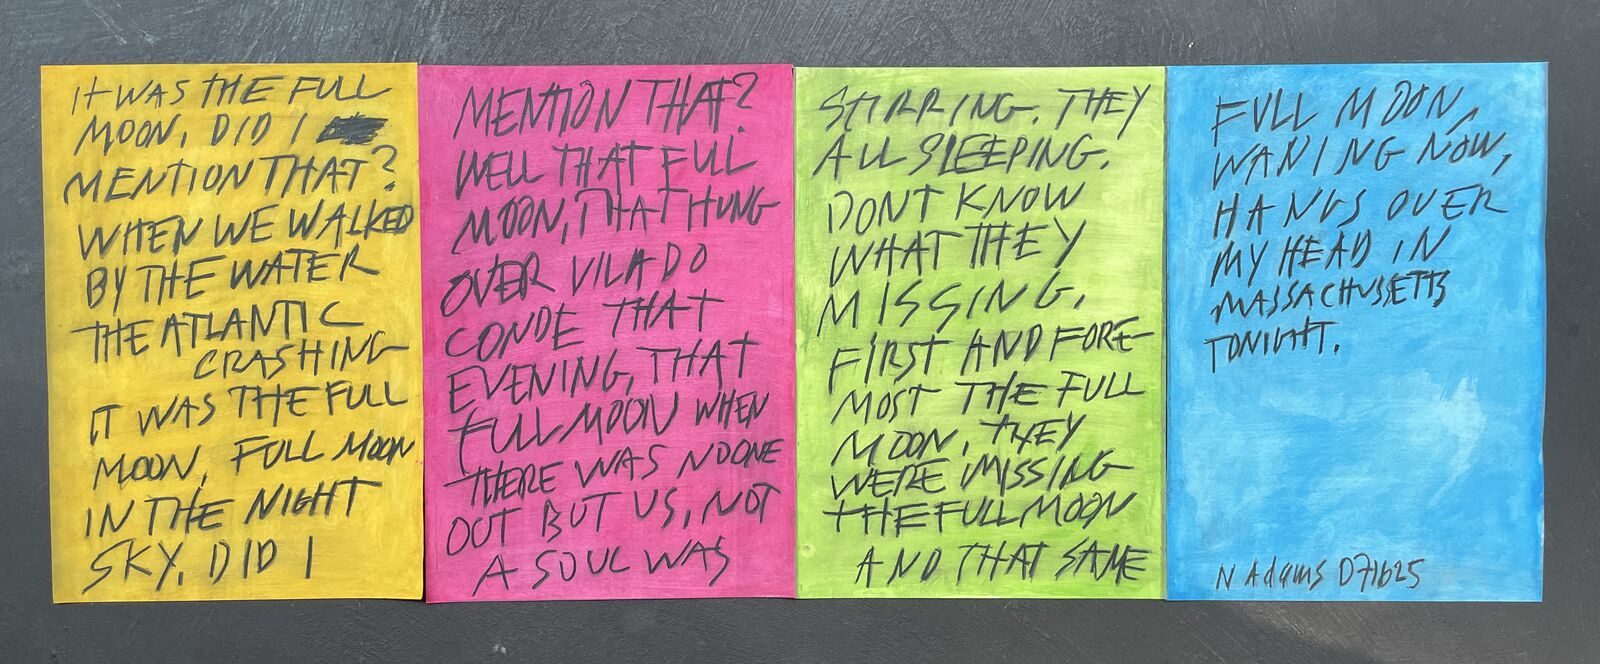 IT WAS THE FULL
MOON, DID I
MENTION THAT?
WHEN WE WALKED
BY THE WATER
THE ATLANTIC
CRASHING
IT WAS THE FULL
MOON, FULL MOON
IN THE NIGHT
SKY, DID I
MENTION THAT?
WELL THAT FULL
MOON, THAT HUNG
OVER VILA DO
CONDE THAT
EVENING, THAT
FULL MOON WHEN
THERE WAS NO ONE
OUT BUT US, NOT
A SOUL WAS
STIRRING. THEY
ALL SLEEPING.
DONT KNOW
WHAT THEY
MISSING,
FIRST AND FORE-
MOST THE FULL
MOON, THEY
WERE MISSING
THE FULL MOON
AND THAT SAME
FULL MOON,
WANING NOW,
HANGS OVER
MY HEAD IN
MASSACHUSSETTS
TONIGHT.
N Adams D71625